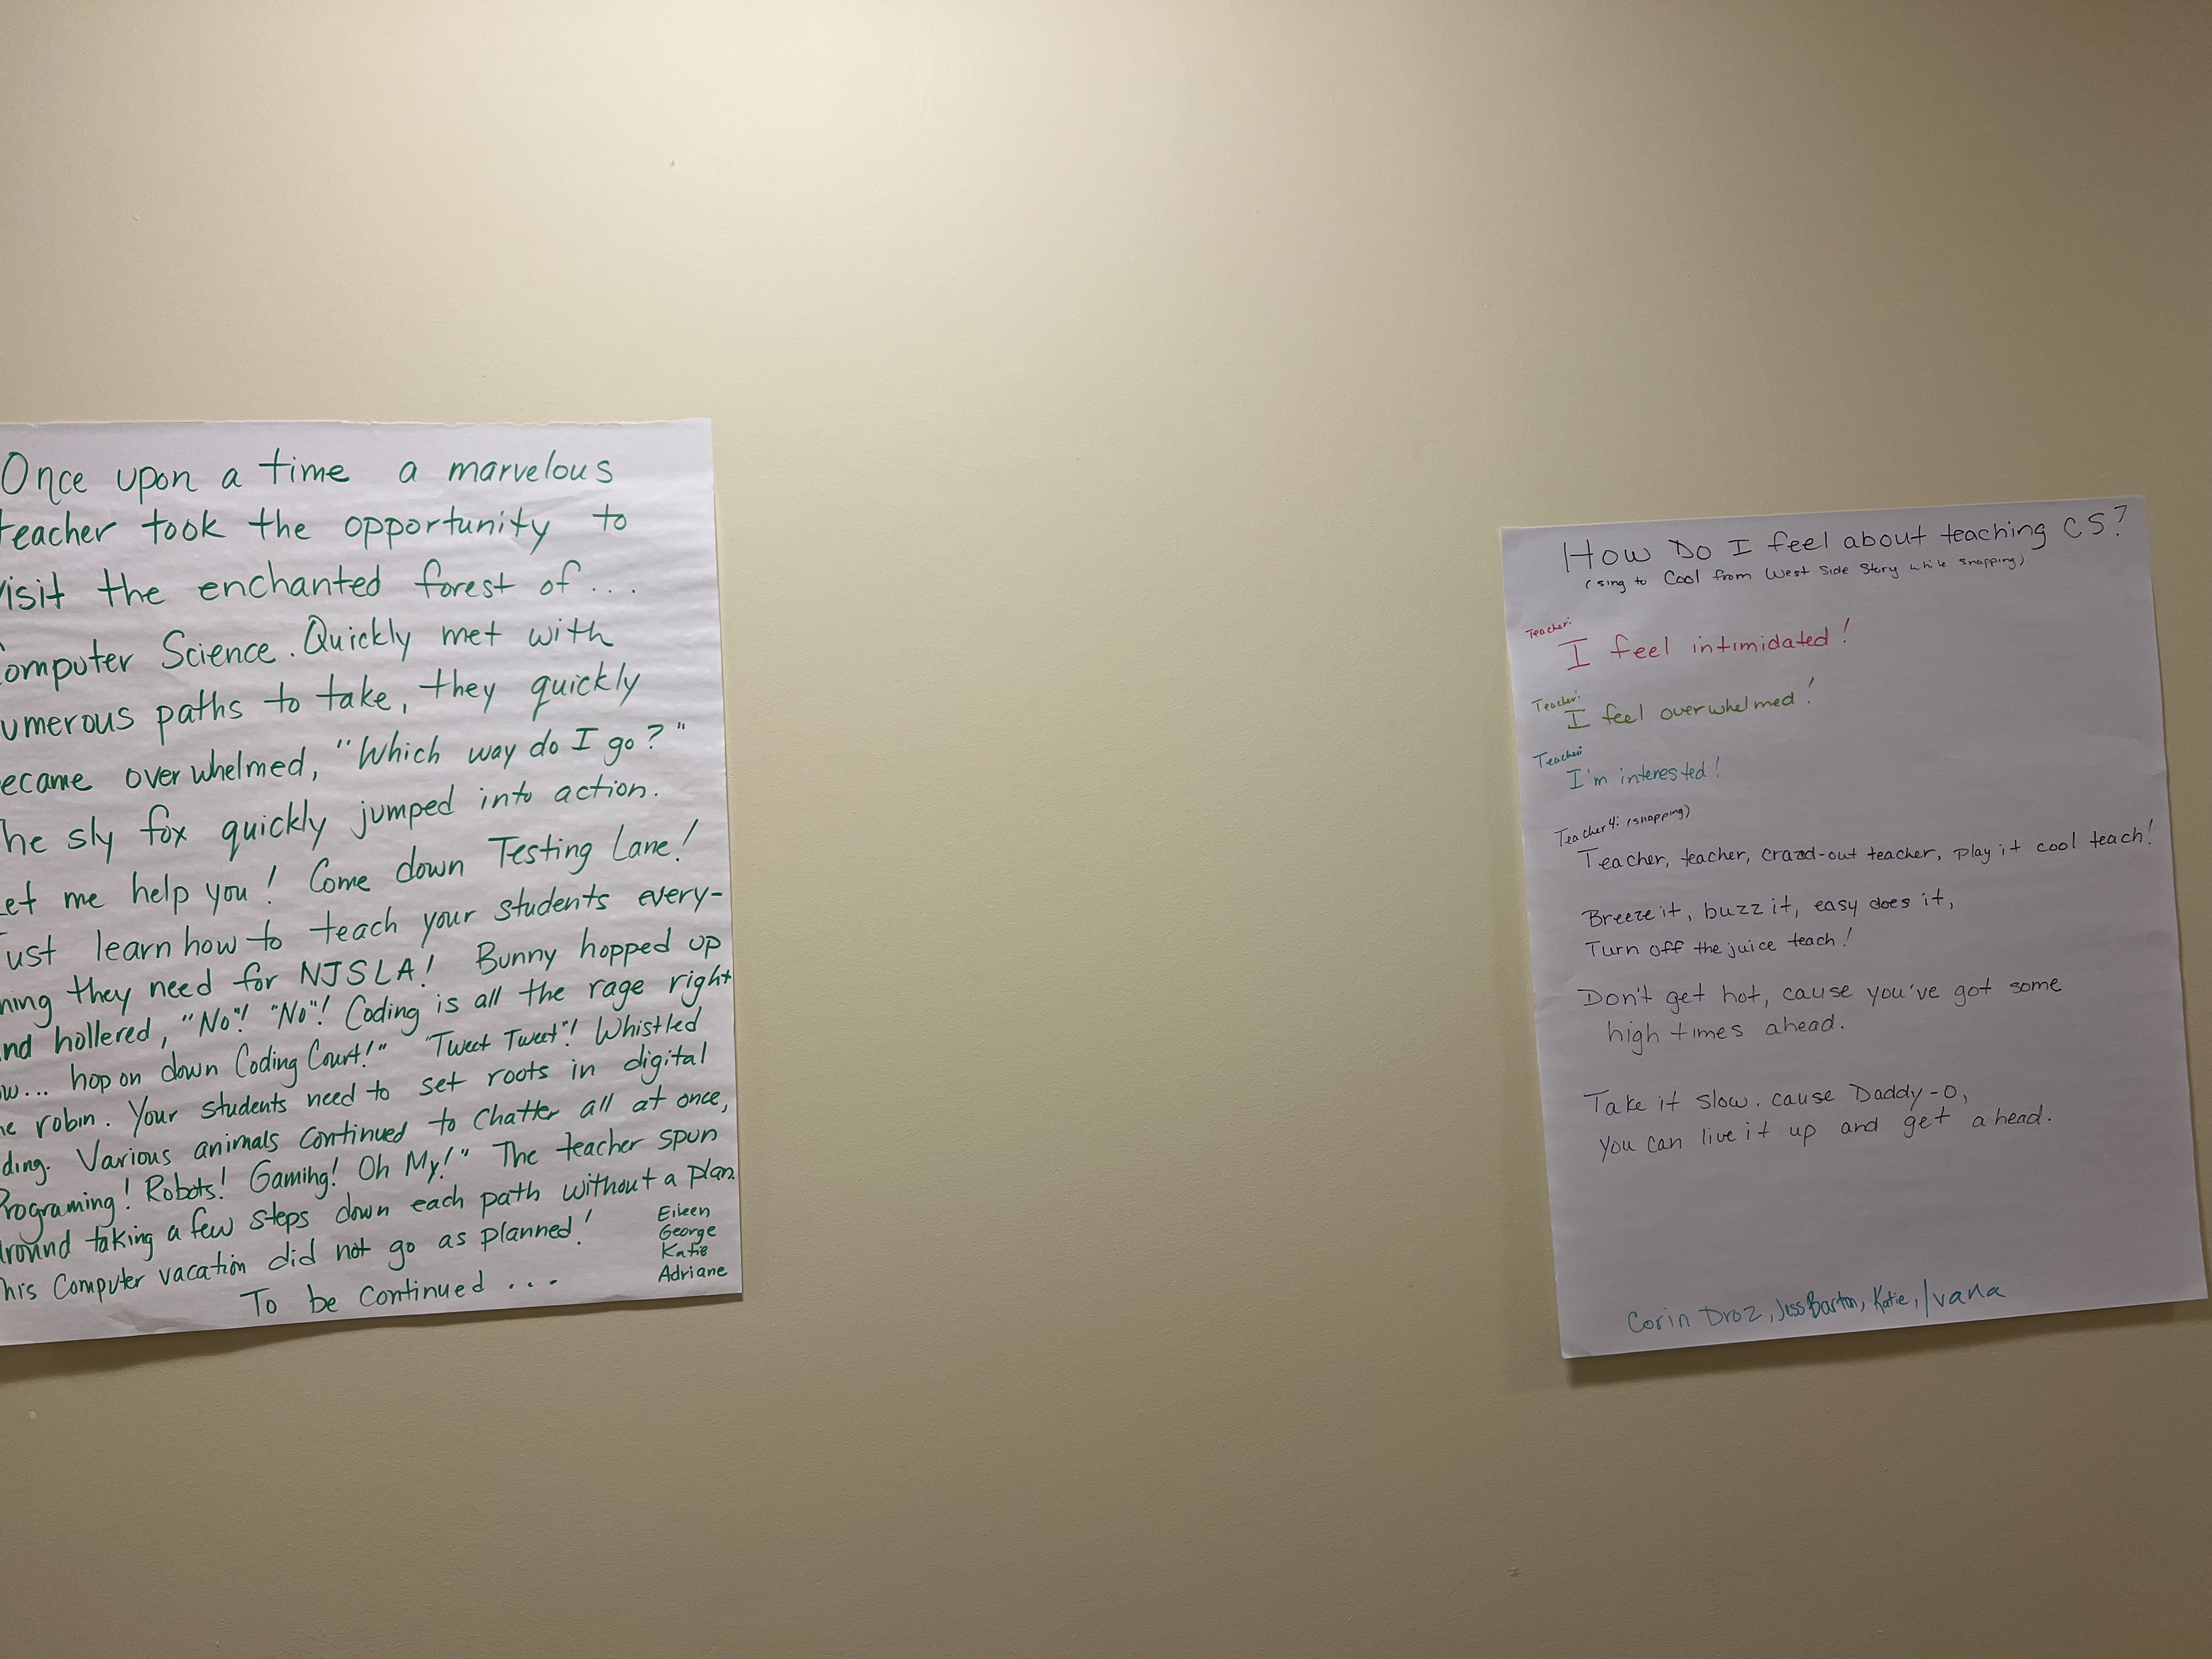 Once upon a time a marvelous
teacher took the opportunity to
visit the enchanted forest of...
Computer Science. Quickly met with
umerous paths to take, they quickly
ecame overwhelmed, "Which way do I go?"
he sly fox quickly jumped into action.
Let me help you! Come down Testing Lane!
Just learn how to teach your students every-
hing they need for NJSLA! Bunny hopped up
nd hollered, "No"! "No"! Coding is all the rage right
ow... hop on down Coding Court!" "Tweet Tweet"! Whistled
he robin. Your students need to set roots in digital
ding. Various animals continued to chatter all at once,
Programing! Robots! Gaming! Oh My!" The teacher spun
around taking a few steps down each path without a plan.
his Computer vacation did not go as planned!
To be continued...
Eileen
George
Katie
Adriane
How Do I feel about teaching CS?
(sing to Cool from West Side Story while snapping)
Teacher:
I feel intimidated!
Teacher:
I feel overwhelmed!
Teacher:
I'm interested!
Teacher 4: (snapping)
Teacher, teacher, crazd-out teacher, play it cool teach!
Breeze it, buzz it, easy does it,
Turn off the juice teach!
Don't get hot, cause you've got some
high times ahead.
Take it slow. cause Daddy-O,
You can live it up and get ahead.
Corin Droz, Jess Barton, Katie, Ivana